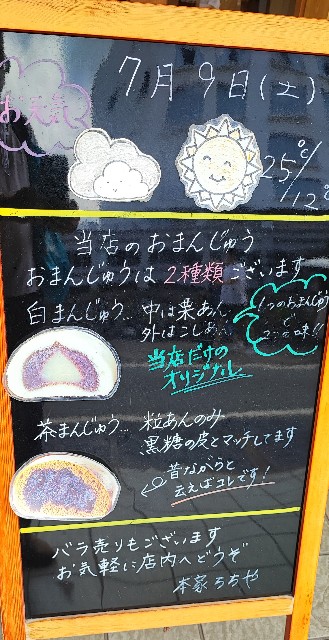 7月9日(土)
お天気
25℃/12℃
当店のおまんじゅう
おまんじゅうは2種類ございます
白まんじゅう… 中は栗あん
外はこしあん
1つのおまんじゅう
で
2つの味!!
当店だけの
オリジナル
茶まんじゅう… 粒あんのみ
黒糖の皮とマッチしてます
昔ながらと
云えばコレです!
バラ売りもございます
お気軽に店内へどうぞ
本家ろちや